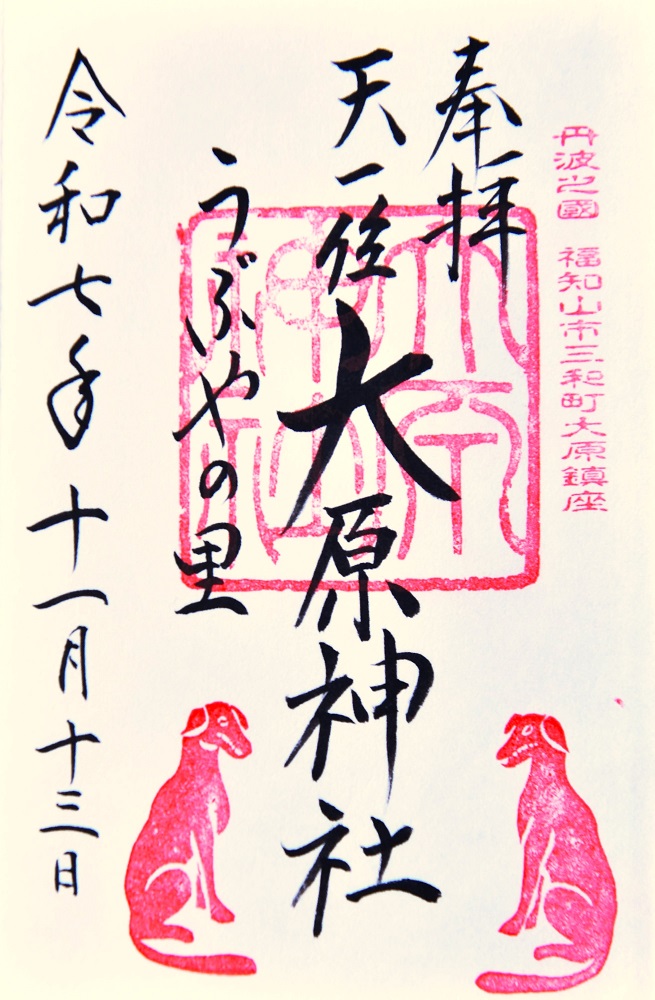 丹波之國 福知山市三和町大原鎮座
奉拝
天一位 大原神社
うぶやの里
令和七年 十一月十三日
大原神社